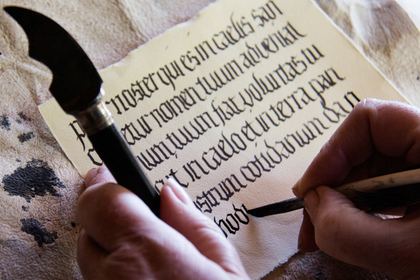 noster qui es in caelis san
etur nomen tuum adveniat
um tuum fiat voluntas tu
in caelo et in terra pan
strum cotidianum da n
hodi